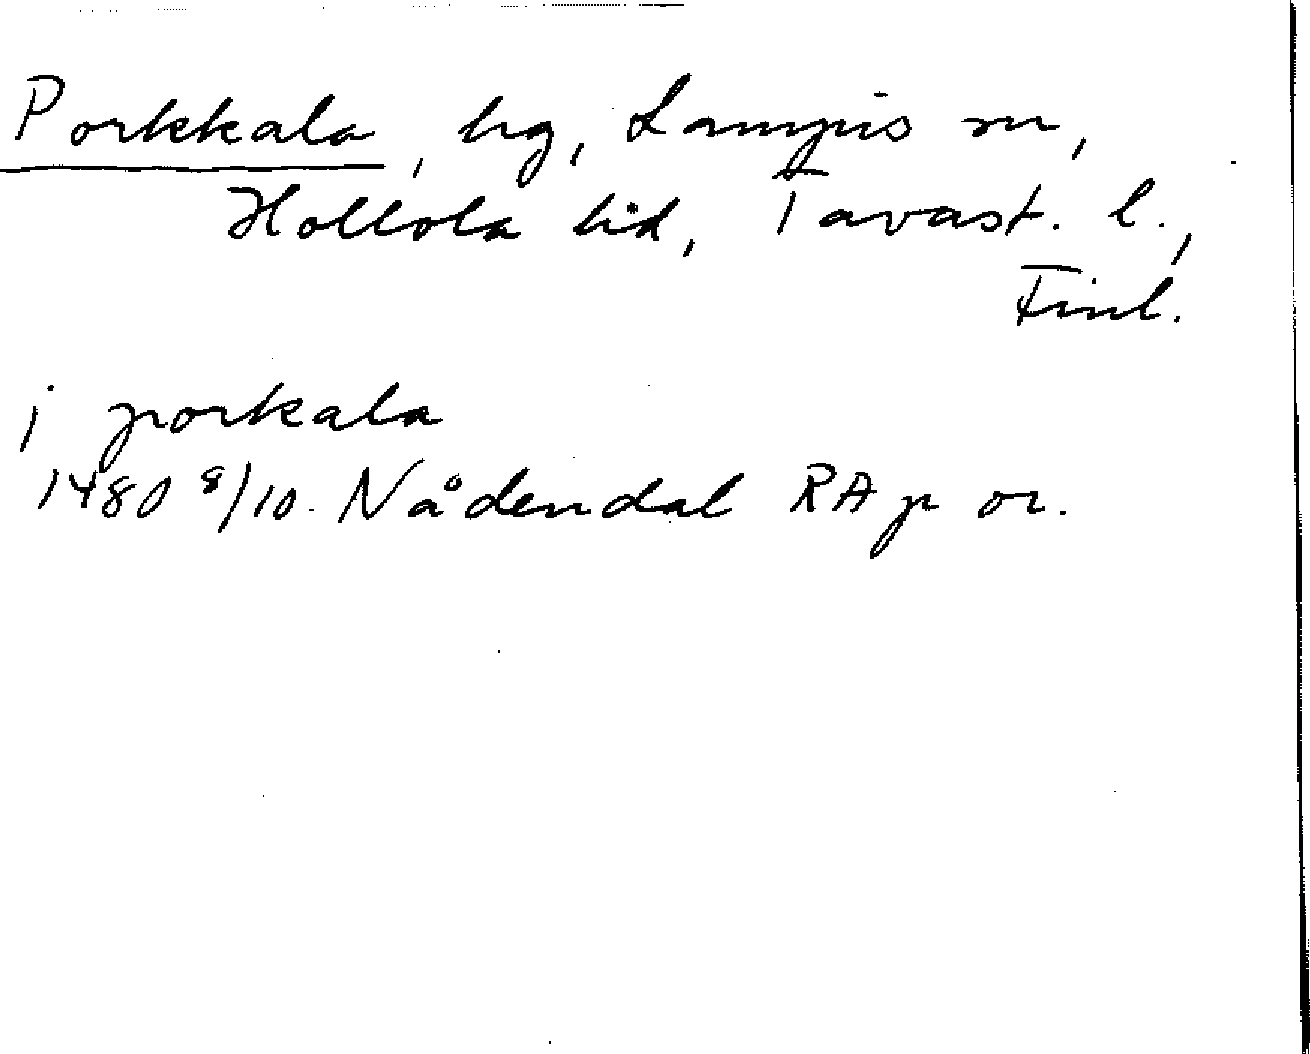 Porkkala, hg, Lampis sn,
Hollola hd, Tavast. l.,
Finl.
j porkala
1480 8/10. Nådendal RAp or.